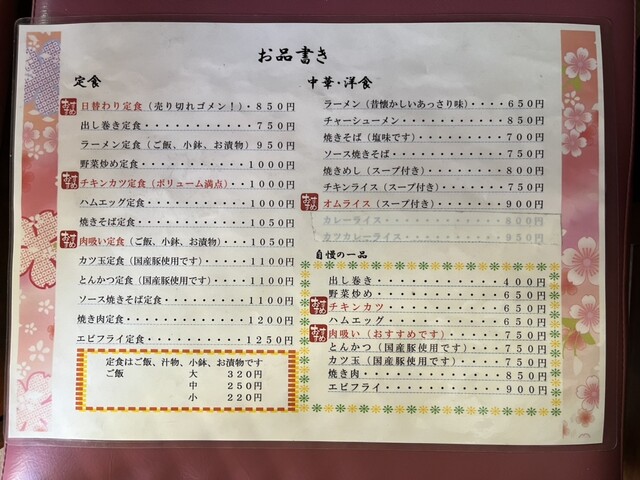 お品書き
定食
おすすめ 日替わり定食（売り切れゴメン！）・８５０円
出し巻き定食・・・・・・・・・・７５０円
ラーメン定食（ご飯、小鉢、お漬物）９５０円
野菜炒め定食・・・・・・・・・１０００円
おすすめ チキンカツ定食（ボリューム満点）・・１０００円
ハムエッグ定食・・・・・・・・１０００円
焼きそば定食・・・・・・・・・１０５０円
おすすめ 肉吸い定食（ご飯、小鉢、お漬物）・・１０５０円
カツ玉定食（国産豚使用です）・・１１００円
とんかつ定食（国産豚使用です）・・１１００円
ソース焼きそば定食・・・・・・１１００円
焼き肉定食・・・・・・・・・・１２００円
エビフライ定食・・・・・・・・１２５０円
定食はご飯、汁物、小鉢、お漬物です
ご飯 大 ３２０円
中 ２５０円
小 ２２０円
中華・洋食
ラーメン（昔懐かしいあっさり味）・・・・６５０円
チャーシューメン・・・・・・・・・・８５０円
焼きそば（塩味です）・・・・・・・・７００円
ソース焼きそば・・・・・・・・・・・７５０円
焼きめし（スープ付き）・・・・・・・８００円
チキンライス（スープ付き）・・・・・７５０円
おすすめ オムライス（スープ付き）・・・・・・９００円
カレーライス・・・・・・・・・・・・８００円
カツカレーライス・・・・・・・・・・９５０円
自慢の一品
出し巻き・・・・・・・・・・・・４００円
野菜炒め・・・・・・・・・・・・６５０円
おすすめ チキンカツ・・・・・・・・・・・６５０円
ハムエッグ・・・・・・・・・・・６５０円
おすすめ 肉吸い（おすすめです）・・・・・７５０円
とんかつ（国産豚使用です）・・・・７５０円
カツ玉（国産豚使用です）・・・・・７５０円
焼き肉・・・・・・・・・・・・・８５０円
エビフライ・・・・・・・・・・・９００円